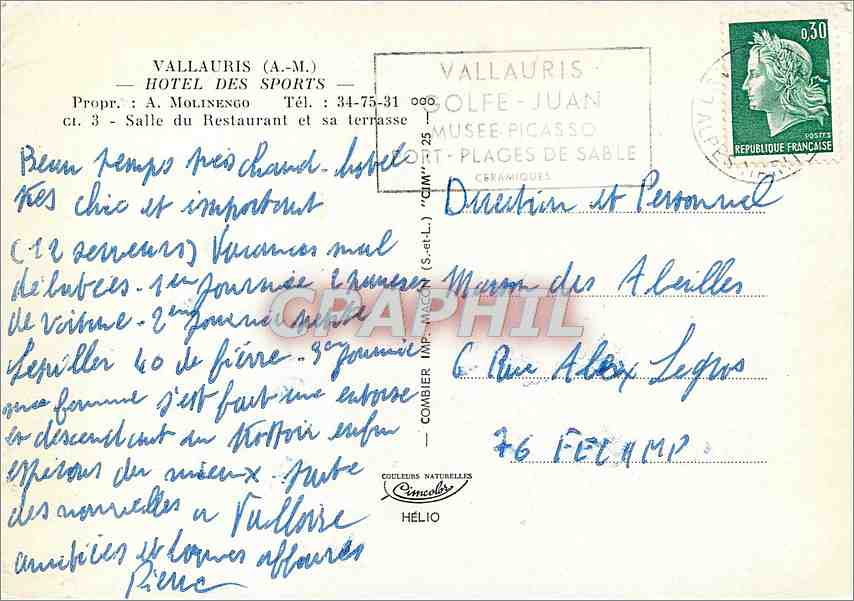 VALLAURIS (A.-M.)
— HOTEL DES SPORTS —
Propr. : A. MOLINENGO Tél. : 34-75-31
CI. 3 - Salle du Restaurant et sa terrasse
VALLAURIS
GOLFE-JUAN
MUSEE PICASSO
PORT-PLAGES DE SABLE
CERAMIQUES
0,30
POSTES
REPUBLIQUE FRANÇAISE
ALPES
Beau temps très chaud - hotel
très chic et important
(12 serveurs) Vacances mal
debutées - 1er Journée
de voiture - 2em Journée
40 de fièvre - 3em Journée
ma femme s'est fait une entorse
en descendant un trottoir enfin
espérons du mieux - suite
des nouvelles a Valloire
amitiées et bonnes affaires
Pierre
— COMBIER IMP. MACON (S.-et-L.) "CIM" 25 -
COULEURS NATURELLES
Cimcolor
HÉLIO
Direction et Personnel
Maison des Abeilles
6 Rue Alex Legros
76 FECAMP
CRAPHIL